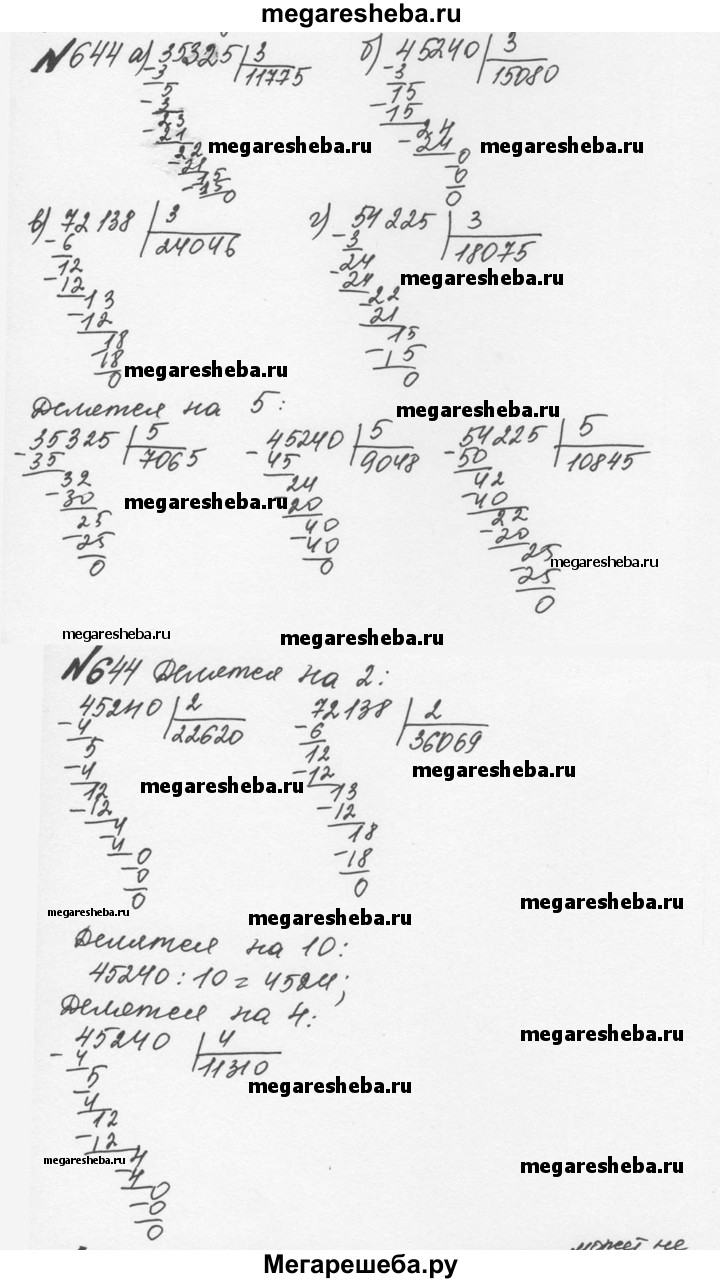 megaresheba.ru
№644 а) 35325 | 3 б) 45240 | 3
11775 15080
-3 -3
5 15
-3 -15
23 24
-21 -24
megaresheba.ru megaresheba.ru
22 0
-21 -0
15 0
-15
0
в) 72138 | 3 г) 54225 | 3
24046 18075
-6 -3
12 24
-12 -24
megaresheba.ru
13 22
-12 21
18 15
18 -15
0 0
megaresheba.ru
Делятся на 5:
megaresheba.ru
35325 | 5 45240 | 5 54225 | 5
7065 9048 10845
-35 -45 -50
32 24 42
-30 -20 -40
megaresheba.ru
25 40 22
-25 -40 -20
0 0 25
megaresheba.ru
-25
0
megaresheba.ru megaresheba.ru
№644 Делятся на 2:
45240 | 2 72138 | 2
22620 36069
-4 -6
5 12
-4 -12
megaresheba.ru megaresheba.ru
12 13
-12 -12
4 18
-4 -18
0 0
-0
0
megaresheba.ru
megaresheba.ru megaresheba.ru
Делятся на 10:
45240 : 10 = 4524;
Делятся на 4:
megaresheba.ru
45240 | 4
11310
-4
5
megaresheba.ru
-4
12
-12
4
megaresheba.ru megaresheba.ru
-4
0
-0
0
может не
Мегарешеба.ру